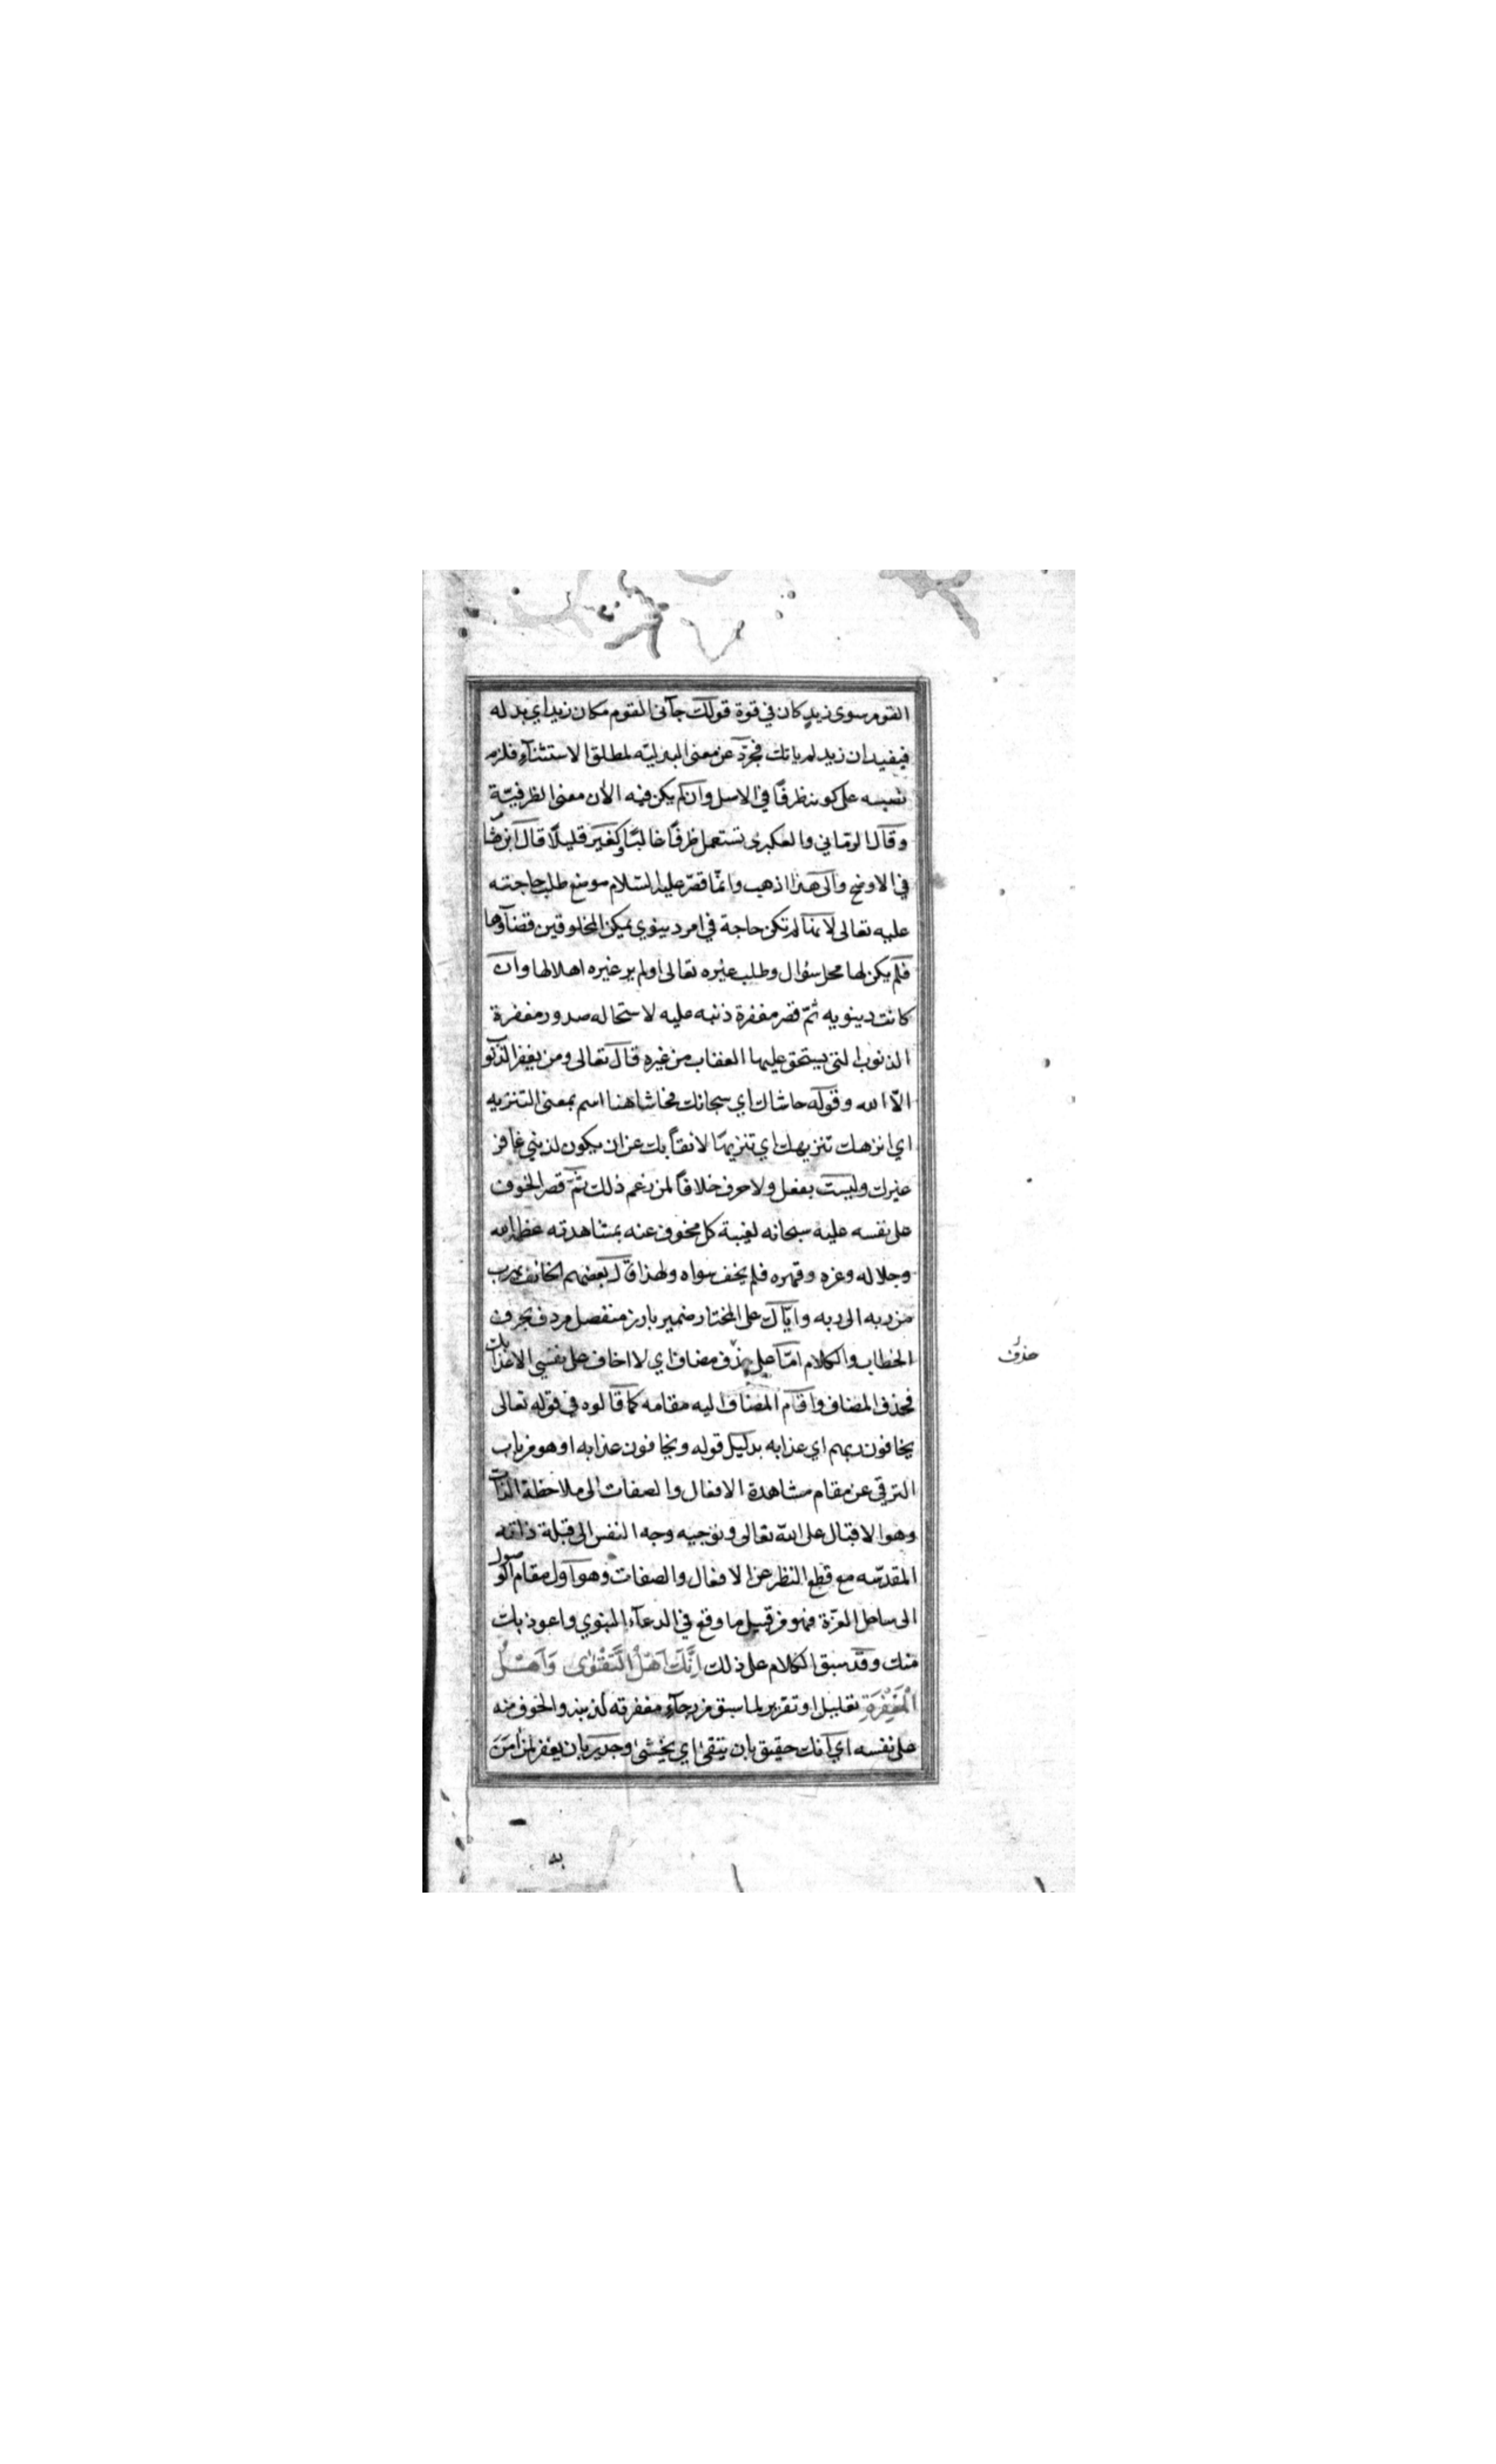 القوم سوى زيد كان في قوة قولك جآنى القوم مكان زيد اي بدله
فيفيد ان زيد لم ياتك فجرّد عن معنى البدليّه لمطلق الاستثنآء فلزم
نصبه على كونه ظرفًا في الاصل وان لم يكن فيه الآن معنى الظرفيّة
وقال الرمّاني والعكبرى تستعمل ظرفًا غالبًا وكغير قليلًا قال ابن هشا
في الاوضح والى هذا اذهب وانّما قصر عليه السّلام موضع طلب حاجته
عليه تعالى لانّها لم تكن حاجة في امر دينوي يمكن المخلوقين قضآوها
فلم يكن لها محل سؤال وطلب غيره تعالى اولم ير غيره اهلا لها وان
كانت دينويه ثمّ قصر مغفرة ذنبه عليه لاستحاله صدور مغفرة
الذنوب التي يستحق عليها العقاب من غيره قال تعالى ومن يغفر الذنو
الّا الله وقوله حاشاك اي سبحانك فحاشا هنا اسم بمعنى التنزيه
اي انزهك تنزيهك اي تنزيهًا لائقًا بك عن ان يكون لذنبي غافر
غيرك وليست بفعل ولا حرف خلافًا لمن زعم ذلك ثمّ قصر الخوف
على نفسه عليه سبحانه لغيبة كل مخوف عنه بمشاهدته عظمة الله
وجلاله وعزه وقهره فلم يخف سواه ولهذا قال بعضهم الخائف يهرب
من ربه الى ربه وايّاك على المختار ضمير بارز منفصل مردف بحرف
الخطاب والكلام امّا على حذف مضاف اي لا اخاف على نفسي الا عذابك
حذف
فحذف المضاف واقام المضاف اليه مقامه كما قالوه في قوله تعالى
يخافون ربهم اي عذابه بدليل قوله ويخافون عذابه او هو من باب
الترقي عن مقام مشاهدة الافعال والصفات الى ملاحظة الذات
وهو الاقبال على الله تعالى وتوجيه وجه النفس الى قبلة ذاته
المقدسه مع قطع النظر عن الافعال والصفات وهو اول مقام الوصول
الى ساحل العزّة فهو من قبيل ما وقع في الدعآء النبوي واعوذ بك
منك وقد سبق الكلام على ذلك اِنَّكَ اَهْلُ التَّقْوٰى وَاَهْلُ
الْمَغْفِرَةِ تعليل او تقرير لما سبق من رجآء مغفرته لذنبه والخوف منه
على نفسه اي انك حقيق بان يتقى اي يخشى وجدير بان يغفر لمن آمن
به